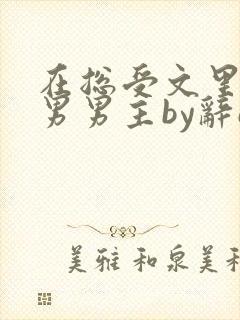 在总受文里
男男主by辭
美雅 和泉美和